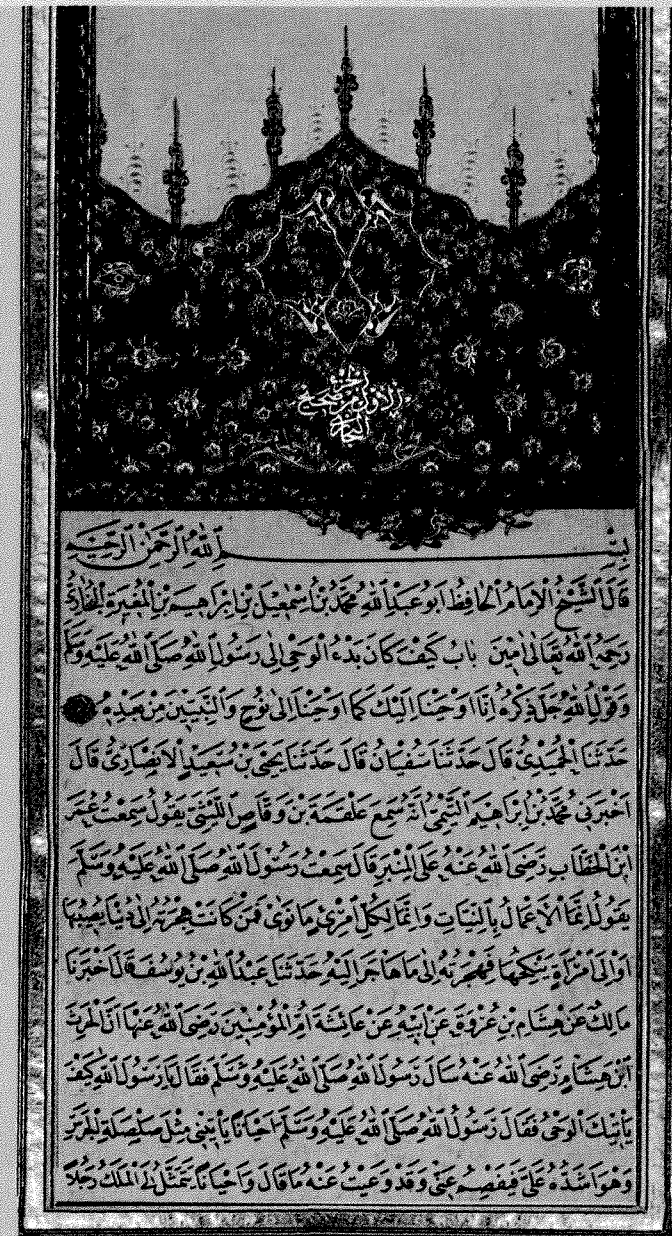 الجزء
الأول من صحيح
البخاري
بِسْمِ اللَّهِ الرَّحْمَنِ الرَّحِيمِ
قَالَ الشَّيْخُ الْإِمَامُ الْحَافِظُ أَبُو عَبْدِ اللَّهِ مُحَمَّدُ بْنُ إِسْمَعِيلَ بْنِ إِبْرَاهِيمَ بْنِ الْمُغِيرَةِ الْبُخَارِيُّ
رَحِمَهُ اللَّهُ تَعَالَى آمِينَ بَابُ كَيْفَ كَانَ بَدْءُ الْوَحْيِ إِلَى رَسُولِ اللَّهِ صَلَّى اللَّهُ عَلَيْهِ وَسَلَّمَ
وَقَوْلِ اللَّهِ جَلَّ ذِكْرُهُ إِنَّا أَوْحَيْنَا إِلَيْكَ كَمَا أَوْحَيْنَا إِلَى نُوحٍ وَالنَّبِيِّينَ مِنْ بَعْدِهِ
حَدَّثَنَا الْحُمَيْدِيُّ قَالَ حَدَّثَنَا سُفْيَانُ قَالَ حَدَّثَنَا يَحْيَى بْنُ سَعِيدٍ الْأَنْصَارِيُّ قَالَ
أَخْبَرَنِي مُحَمَّدُ بْنُ إِبْرَاهِيمَ التَّيْمِيُّ أَنَّهُ سَمِعَ عَلْقَمَةَ بْنَ وَقَّاصٍ اللَّيْثِيَّ يَقُولُ سَمِعْتُ عُمَرَ
ابْنَ الْخَطَّابِ رَضِيَ اللَّهُ عَنْهُ عَلَى الْمِنْبَرِ قَالَ سَمِعْتُ رَسُولَ اللَّهِ صَلَّى اللَّهُ عَلَيْهِ وَسَلَّمَ
يَقُولُ إِنَّمَا الْأَعْمَالُ بِالنِّيَّاتِ وَإِنَّمَا لِكُلِّ امْرِئٍ مَا نَوَى فَمَنْ كَانَتْ هِجْرَتُهُ إِلَى دُنْيَا يُصِيبُهَا
أَوْ إِلَى امْرَأَةٍ يَنْكِحُهَا فَهِجْرَتُهُ إِلَى مَا هَاجَرَ إِلَيْهِ حَدَّثَنَا عَبْدُ اللَّهِ بْنُ يُوسُفَ قَالَ أَخْبَرَنَا
مَالِكٌ عَنْ هِشَامِ بْنِ عُرْوَةَ عَنْ أَبِيهِ عَنْ عَائِشَةَ أُمِّ الْمُؤْمِنِينَ رَضِيَ اللَّهُ عَنْهَا أَنَّ الْحَرِثَ
ابْنَ هِشَامٍ رَضِيَ اللَّهُ عَنْهُ سَأَلَ رَسُولَ اللَّهِ صَلَّى اللَّهُ عَلَيْهِ وَسَلَّمَ فَقَالَ يَا رَسُولَ اللَّهِ كَيْفَ
يَأْتِيكَ الْوَحْيُ فَقَالَ رَسُولُ اللَّهِ صَلَّى اللَّهُ عَلَيْهِ وَسَلَّمَ أَحْيَانًا يَأْتِينِي مِثْلَ صَلْصَلَةِ الْجَرَسِ
وَهُوَ أَشَدُّهُ عَلَيَّ فَيَفْصِمُ عَنِّي وَقَدْ وَعَيْتُ عَنْهُ مَا قَالَ وَأَحْيَانًا يَتَمَثَّلُ لِيَ الْمَلَكُ رَجُلًا